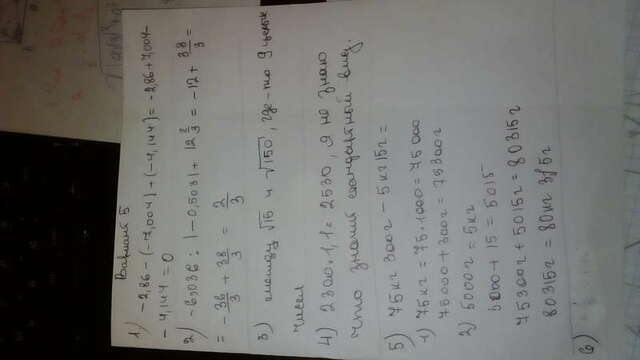 Вариант 5.
1) -2,86-(-7,004)+(-4,144)=-2,86+7,004-
-4,144=0
2) -6,036 : |-0,503|+ 12 2/3 = -12 + 38/3 =
= -36/3 + 38/3 = 2/3
3) между √15 и √150, где-то 9 целых
чисел
4) 2300·1,1=2530, я не знаю
что значит стандартный вид.
5) 75кг 300г - 5кг15г=
1) 75кг=75·1000=75000
75000+300г=75300г
2) 5000г=5кг
5000+15=5015
75300г+5015г=80315г
80315г=80кг 315г
6)